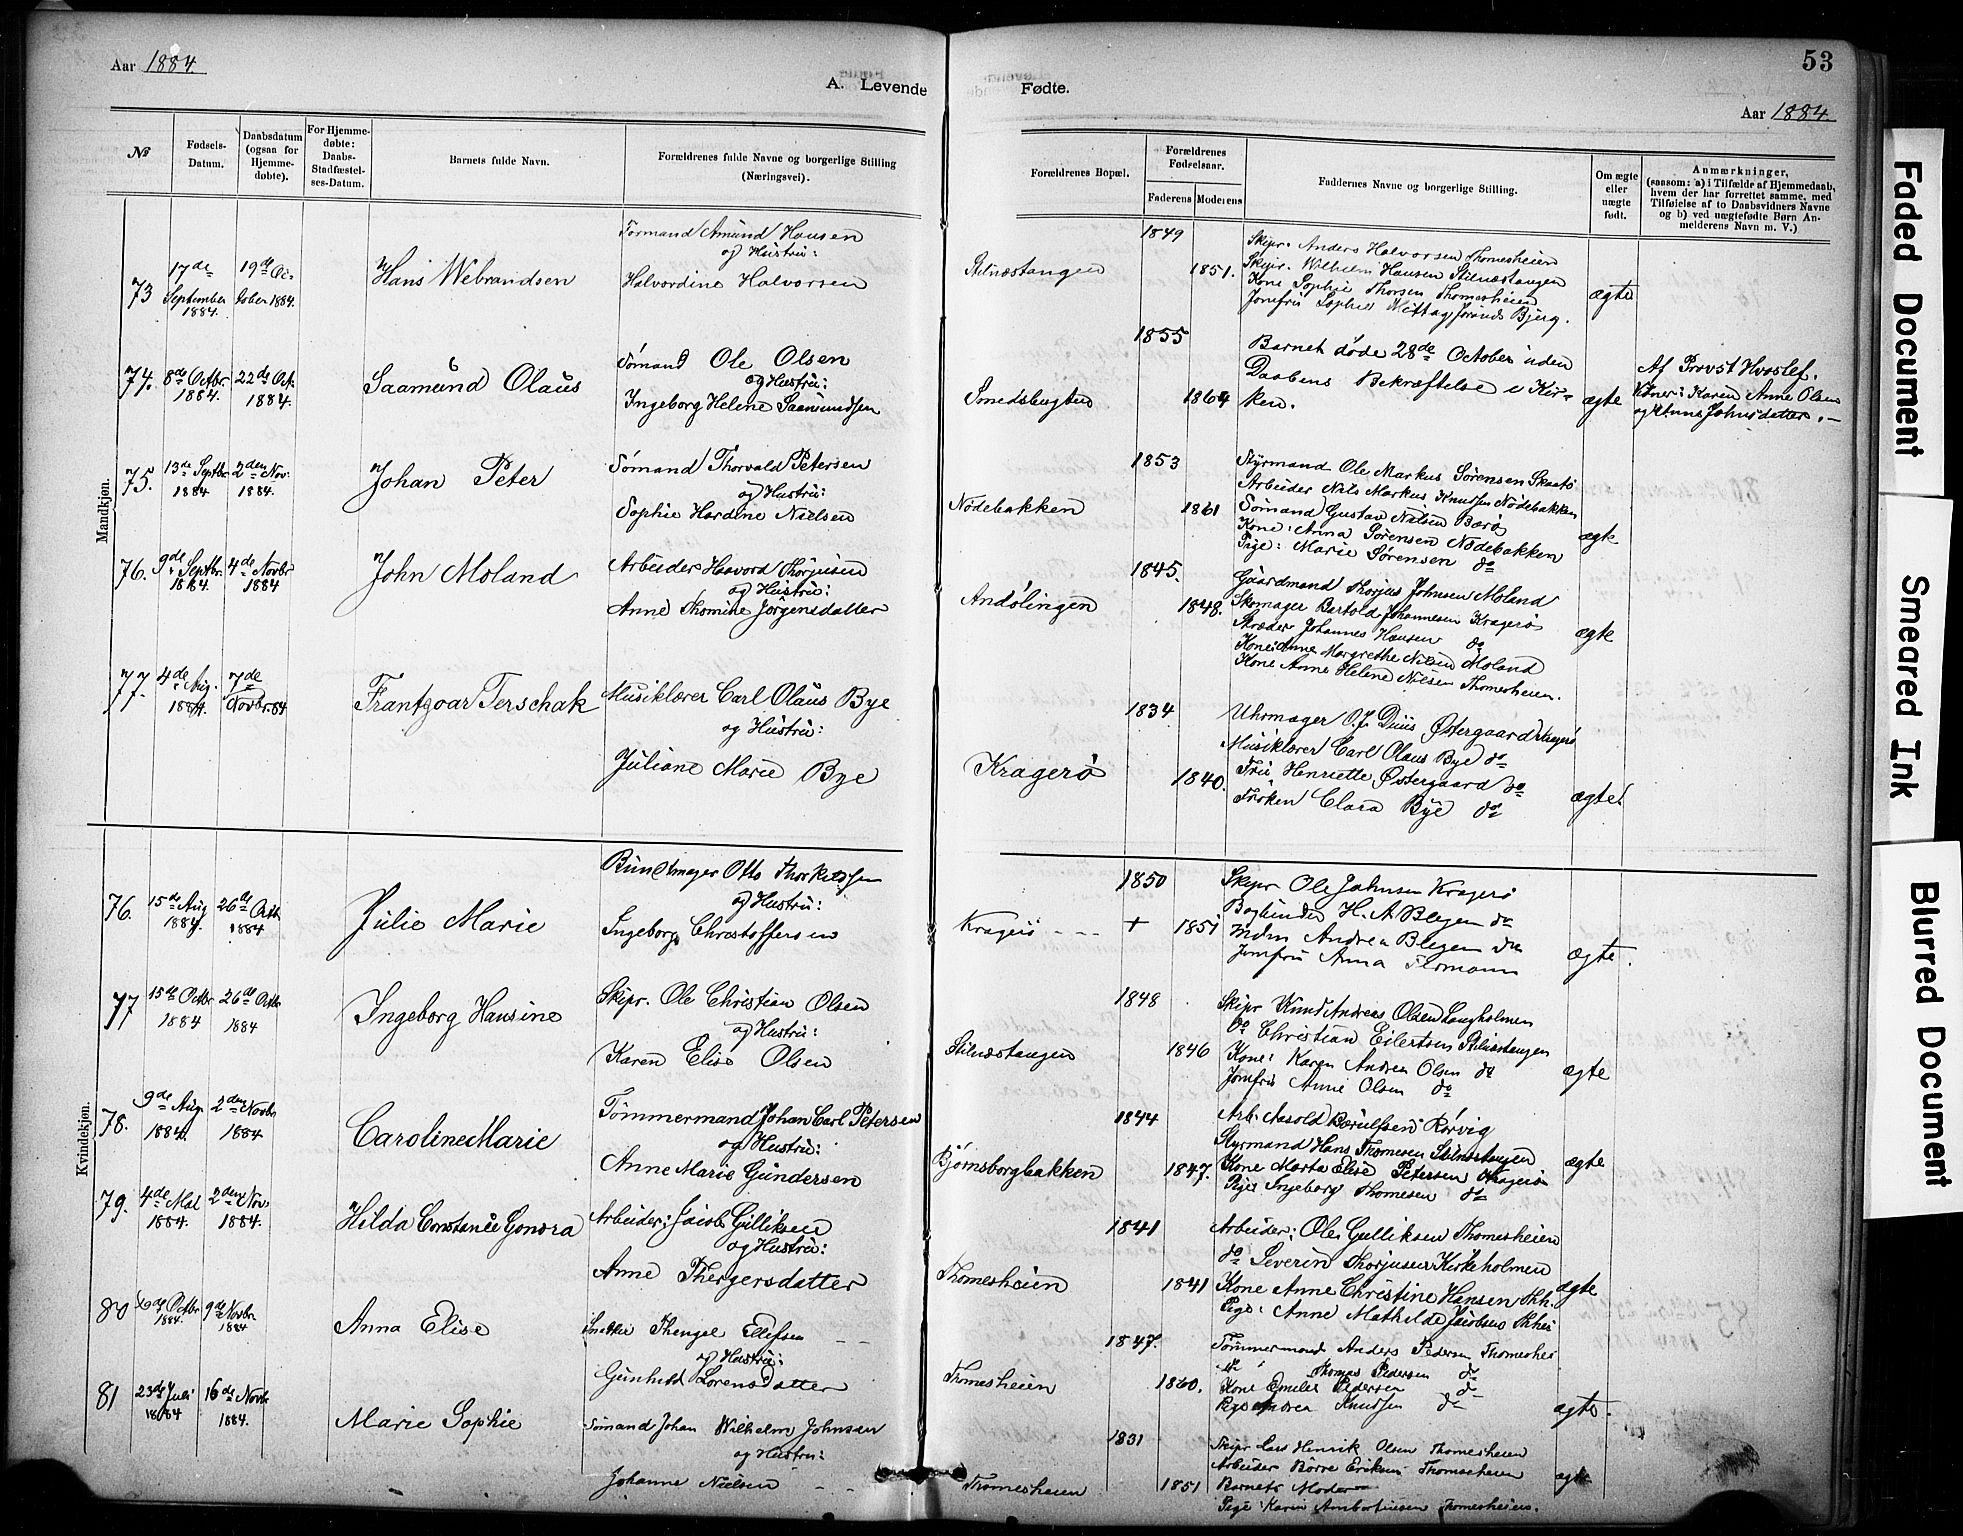 Aar 1884.
A. Levende Fødte.
53
Aar 1884.
№
Fødsels-Datum.
Daabsdatum (ogsaa for Hjemme-døbte).
For Hjemme-døbte: Daabs-Stadfæstel-ses-Datum.
Barnets fulde Navn.
Forældrenes fulde Navne og borgerlige Stilling (Næringsvei).
Forældrenes Bopæl.
Forældrenes Fødselsaar.
Faderens
Moderens
Faddernes Navne og borgerlige Stilling.
Om ægte eller uægte født.
Anmærkninger,
(saasom: a) i Tilfælde af Hjemmedaab,
hvem der har forrettet samme, med
Tilføielse af to Daabsvidners Navne
og b) ved uægtefødte Børn An-
melderens Navn m. V.)
Mandkjøn.
73
17de September 1884.
19de October 1884.
Hans Webrandsen
Formand Amund Hansen
og Hustru:
Halvordine Halvorsen
Stilnæstangen
1849
1851.
Skipr. Anders Halvorsen Thomesheien
Skipr. Wilhelm Hansen Stilnæstangen
Kone Sophie Thorsen Thomesheien
Jomfru Sophie
ægte
74.
8de Octbr 1884.
22de Oct. 1884.
Saamund Olaus
Sømand Ole Olsen
og Hustru:
Ingeborg Helene Saamundsen
Smedsbugten
1855
1864
Barnet døde 28de October uden
Daabens Bekræftelse i Kir-
ken.
ægte
Af Provst Hvoslef.
Vidner: Karen Anne Olsen
og Anne Johnsdatter.
75.
13de Septbr 1884
2den Nov. 1884.
Johan Peter
Sømand Thorvald Petersen
og Hustru:
Sophie Hardine Nielsen
Nödebakken
1853
1861
Styrmand Ole Markus Sørensen Skaatø
Arbeider Nils Markus Knudsen Nödebakken
Sømand Gustav Nilsen Barø
Kone: Anna Sørensen Nödebakken
Pige: Marie Sørensen do
ægte
76.
9de Septbr. 1884.
4de Novbr 1884
John Moland
Arbeider Haavord Thorjusen
og Hustru:
Anne Thomine Jörgensdatter
Andölingen
1845.
1848.
Gaardmand Thorjus Johnsen Moland
Skomager Bartold Johannesen Kragerø
Skræder Johannes Hansen do
Kone: Anne Margrethe Nilsen Moland
Kone Anne Helene Nilsen Thomesheien.
ægte
77.
4de Aug. 1884.
7de Novbr. 84
Frantzoar Terschak
Musiklærer Carl Olaus Bye
og Hustru:
Juliane Marie Bye
Kragerø
1834
1840.
Uhrmager O.J. Duus Østergaard Kragerø
Musiklærer Carl Olaus Bye do
Fru Henriette Østergaard do
Frøken Clara Bye do
ægte.
Kvindekjøn.
76.
15de Aug 1884.
26de Octb 1884
Julie Marie
Bundtmager Otto Thorkildsen
og Hustru:
Ingeborg Christoffersen
Kragerø - - - +
1850
1851
Skipr Ole Johnsen Kragerø
Bogbinder H. A. Blegen do
Mdm Andrea Blegen do
Jomfru Anna
ægte.
77
15de Octbr 1884
26de Octbr 1884
Ingeborg Hansine
Skipr. Ole Christian Olsen
og Hustru:
Karen Elise Olsen
Stilnæstangen
1848
1846
Skipr Knud Andreas Olsen Langholmen
do Christian Eilertsen Stilnæstangen
Kone: Karen Andrea Olsen do
Jomfru Anne Olsen do
ægte
78.
9de Aug. 1884.
2den Novbr 1884
Caroline Marie
Tömmermand Johan Carl Petersen
og Hustru:
Anne Marie Gundersen
Bjørnsborgbakken
1844
1847.
Arb: Aasold Børulfsen Rørvig
Styrmand Hans Thomesen Stilnæstangen
Kone Marta Elise Petersen Kragerø
Pige Ingeborg Thomesen do
ægte
79.
4de Mai 1884.
2den Nov. 1884.
Hilda Constance Gonora
Arbeider: Jacob Gulliksen
og Hustru:
Anne Thergersdatter
Thomesheien
1841
1841
Arbeider: Ole Gulliksen Thomesheien
do Severin Thorjusen Kirkeholmen
Kone Anne Christine Hansen Thh.
Pige: Anne Mathilde Jacobsen Thhei
ægte
80
Octbr 1884.
9de Novbr 1884
Anna Elise
Snekker Thengel Ellefsen - -
og Hustru:
Gunhild Lorensdatter
Thomesheien
1847.
1860.
Tömmermand Anders Pedersen Thomeshei
do Thomas Pedersen do
Kone Emilie Pedersen do
Pige Andrea Knudsen do
ægte.
81
23de Juli 1884
16de Novbr 1884.
Marie Sophie
Sømand Johan Wilhelm Johnsen
og Hustru:
Johanne Nielsen - -
Thomesheien
1831
1851
Skipr Lars Henrik Olsen Thomesheien
Arbeider Börre Eriksen Thomesheien
Barnets Moder
Pige Karin Ambortiusen Thomesheien.
ægte
Faded Document
Smeared Ink
Blurred Document